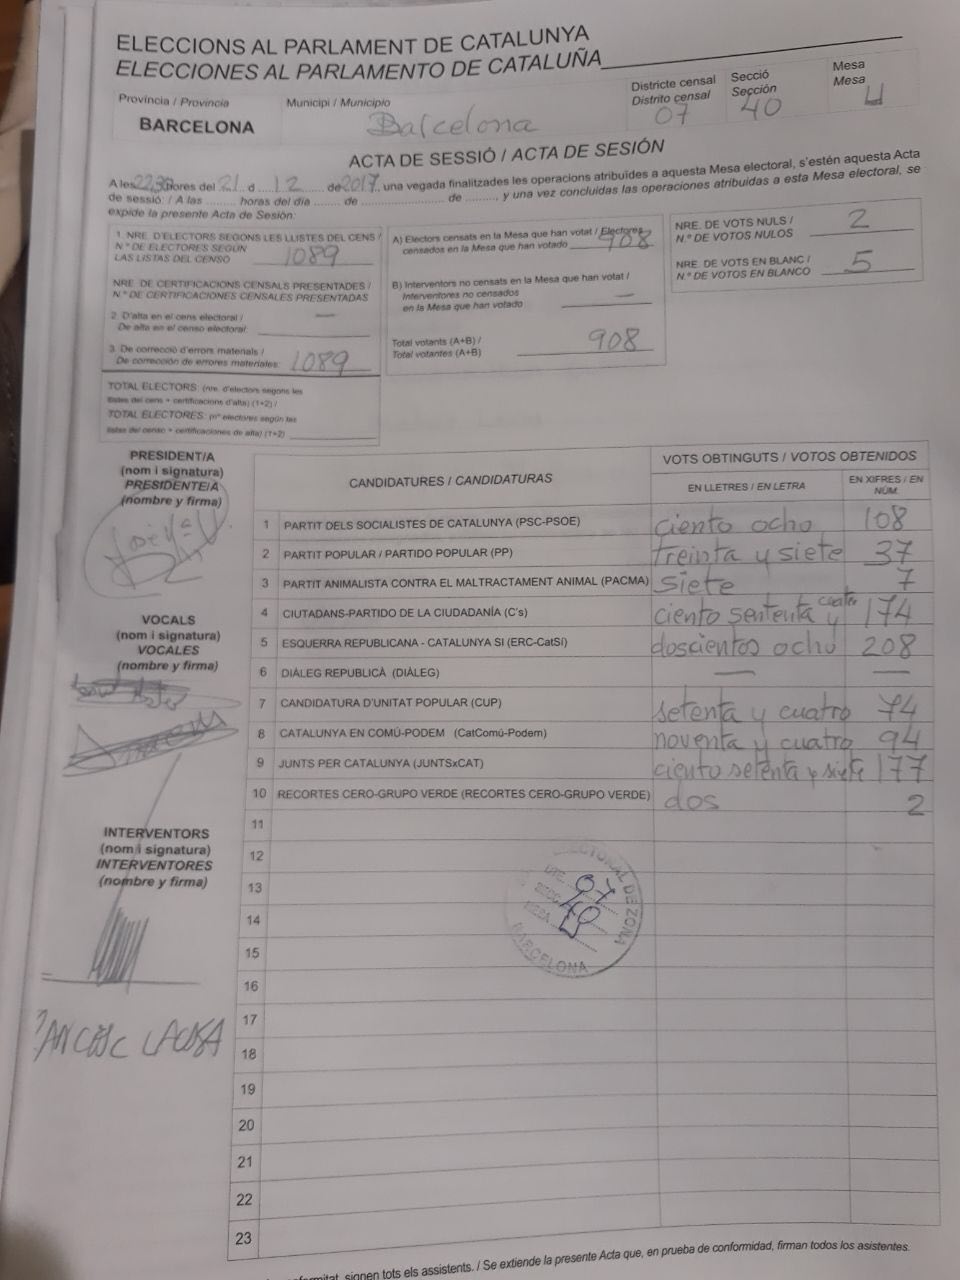 ELECCIONS AL PARLAMENT DE CATALUNYA
ELECCIONES AL PARLAMENTO DE CATALUÑA
Província / Provincia
BARCELONA
Municipi / Municipio
Barcelona
Districte censal
Distrito censal
07
Secció
Sección
40
Mesa
Mesa
U
ACTA DE SESSIÓ / ACTA DE SESIÓN
A les 22,30 hores del 21 d 12 de 2017, una vegada finalitzades les operacions atribuïdes a aquesta Mesa electoral, s'estén aquesta Acta
de sessió: / A las ......... horas del día ........ de ...................... de ........., y una vez concluidas las operaciones atribuidas a esta Mesa electoral, se
expide la presente Acta de Sesión:
1. NRE. D'ELECTORS SEGONS LES LLISTES DEL CENS /
N.º DE ELECTORES SEGÚN
LAS LISTAS DEL CENSO 1089
NRE. DE CERTIFICACIONS CENSALS PRESENTADES /
N.º DE CERTIFICACIONES CENSALES PRESENTADAS
2. D'alta en el cens electoral / —
De alta en el censo electoral:
3. De correcció d'errors materials /
De corrección de errores materiales: 1089
TOTAL ELECTORS: (nre. d'electors segons les
llistes del cens + certificacions d'alta) (1+2) /
TOTAL ELECTORES: (nº electores según las
listas del censo + certificaciones de alta) (1+2)
A) Electors censats en la Mesa que han votat / Electores
censados en la Mesa que han votado 908
B) Interventors no censats en la Mesa que han votat /
Interventores no censados
en la Mesa que han votado —
Total votants (A+B) /
Total votantes (A+B) 908
NRE. DE VOTS NULS /
N.º DE VOTOS NULOS 2
NRE. DE VOTS EN BLANC /
N.º DE VOTOS EN BLANCO 5
PRESIDENT/A
(nom i signatura)
PRESIDENTE/A
(nombre y firma)
VOCALS
(nom i signatura)
VOCALES
(nombre y firma)
INTERVENTORS
(nom i signatura)
INTERVENTORES
(nombre y firma)
CANDIDATURES / CANDIDATURAS
VOTS OBTINGUTS / VOTOS OBTENIDOS
EN LLETRES / EN LETRA
EN XIFRES / EN NÚM.
1 PARTIT DELS SOCIALISTES DE CATALUNYA (PSC-PSOE) ciento ocho 108
2 PARTIT POPULAR / PARTIDO POPULAR (PP) treinta y siete 37
3 PARTIT ANIMALISTA CONTRA EL MALTRACTAMENT ANIMAL (PACMA) siete 7
4 CIUTADANS-PARTIDO DE LA CIUDADANÍA (C's) ciento sententa y cuatro 174
5 ESQUERRA REPUBLICANA - CATALUNYA SI (ERC-CatSí) doscientos ocho 208
6 DIÀLEG REPUBLICÀ (DIÀLEG) — —
7 CANDIDATURA D'UNITAT POPULAR (CUP) setenta y cuatro 74
8 CATALUNYA EN COMÚ-PODEM (CatComú-Podem) noventa y cuatro 94
9 JUNTS PER CATALUNYA (JUNTSxCAT) ciento setenta y siete 177
10 RECORTES CERO-GRUPO VERDE (RECORTES CERO-GRUPO VERDE) dos 2
11
12
13
14
15
16
17
18
19
20
21
22
23
ELECTORAL DE ZONA
DTE. 07
SECC. 40
MESA U
BARCELONA
signen tots els assistents. / Se extiende la presente Acta que, en prueba de conformidad, firman todos los asistentes.